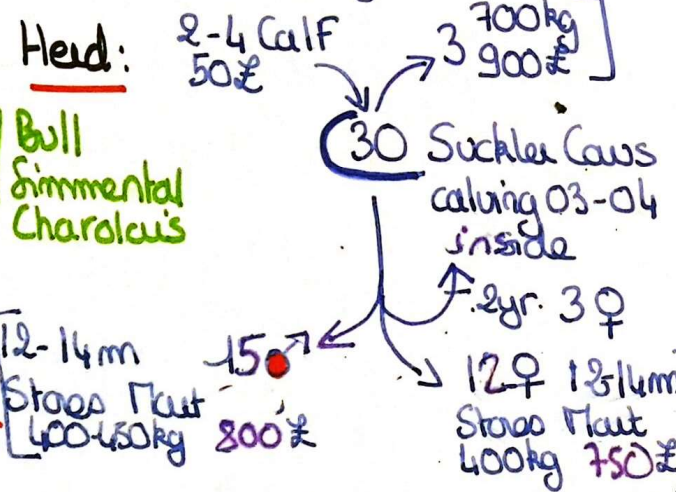 Herd:
2-4 Calf
50£
3 700kg
900£
Bull
Simmental
Charolais
30 Suckler Cows
calving 03-04
inside
2yr. 3♀
15♂
12-14m
Stores Mart
400-450kg 800£
12♀ 12-14m
Stores Mart
400kg 750£